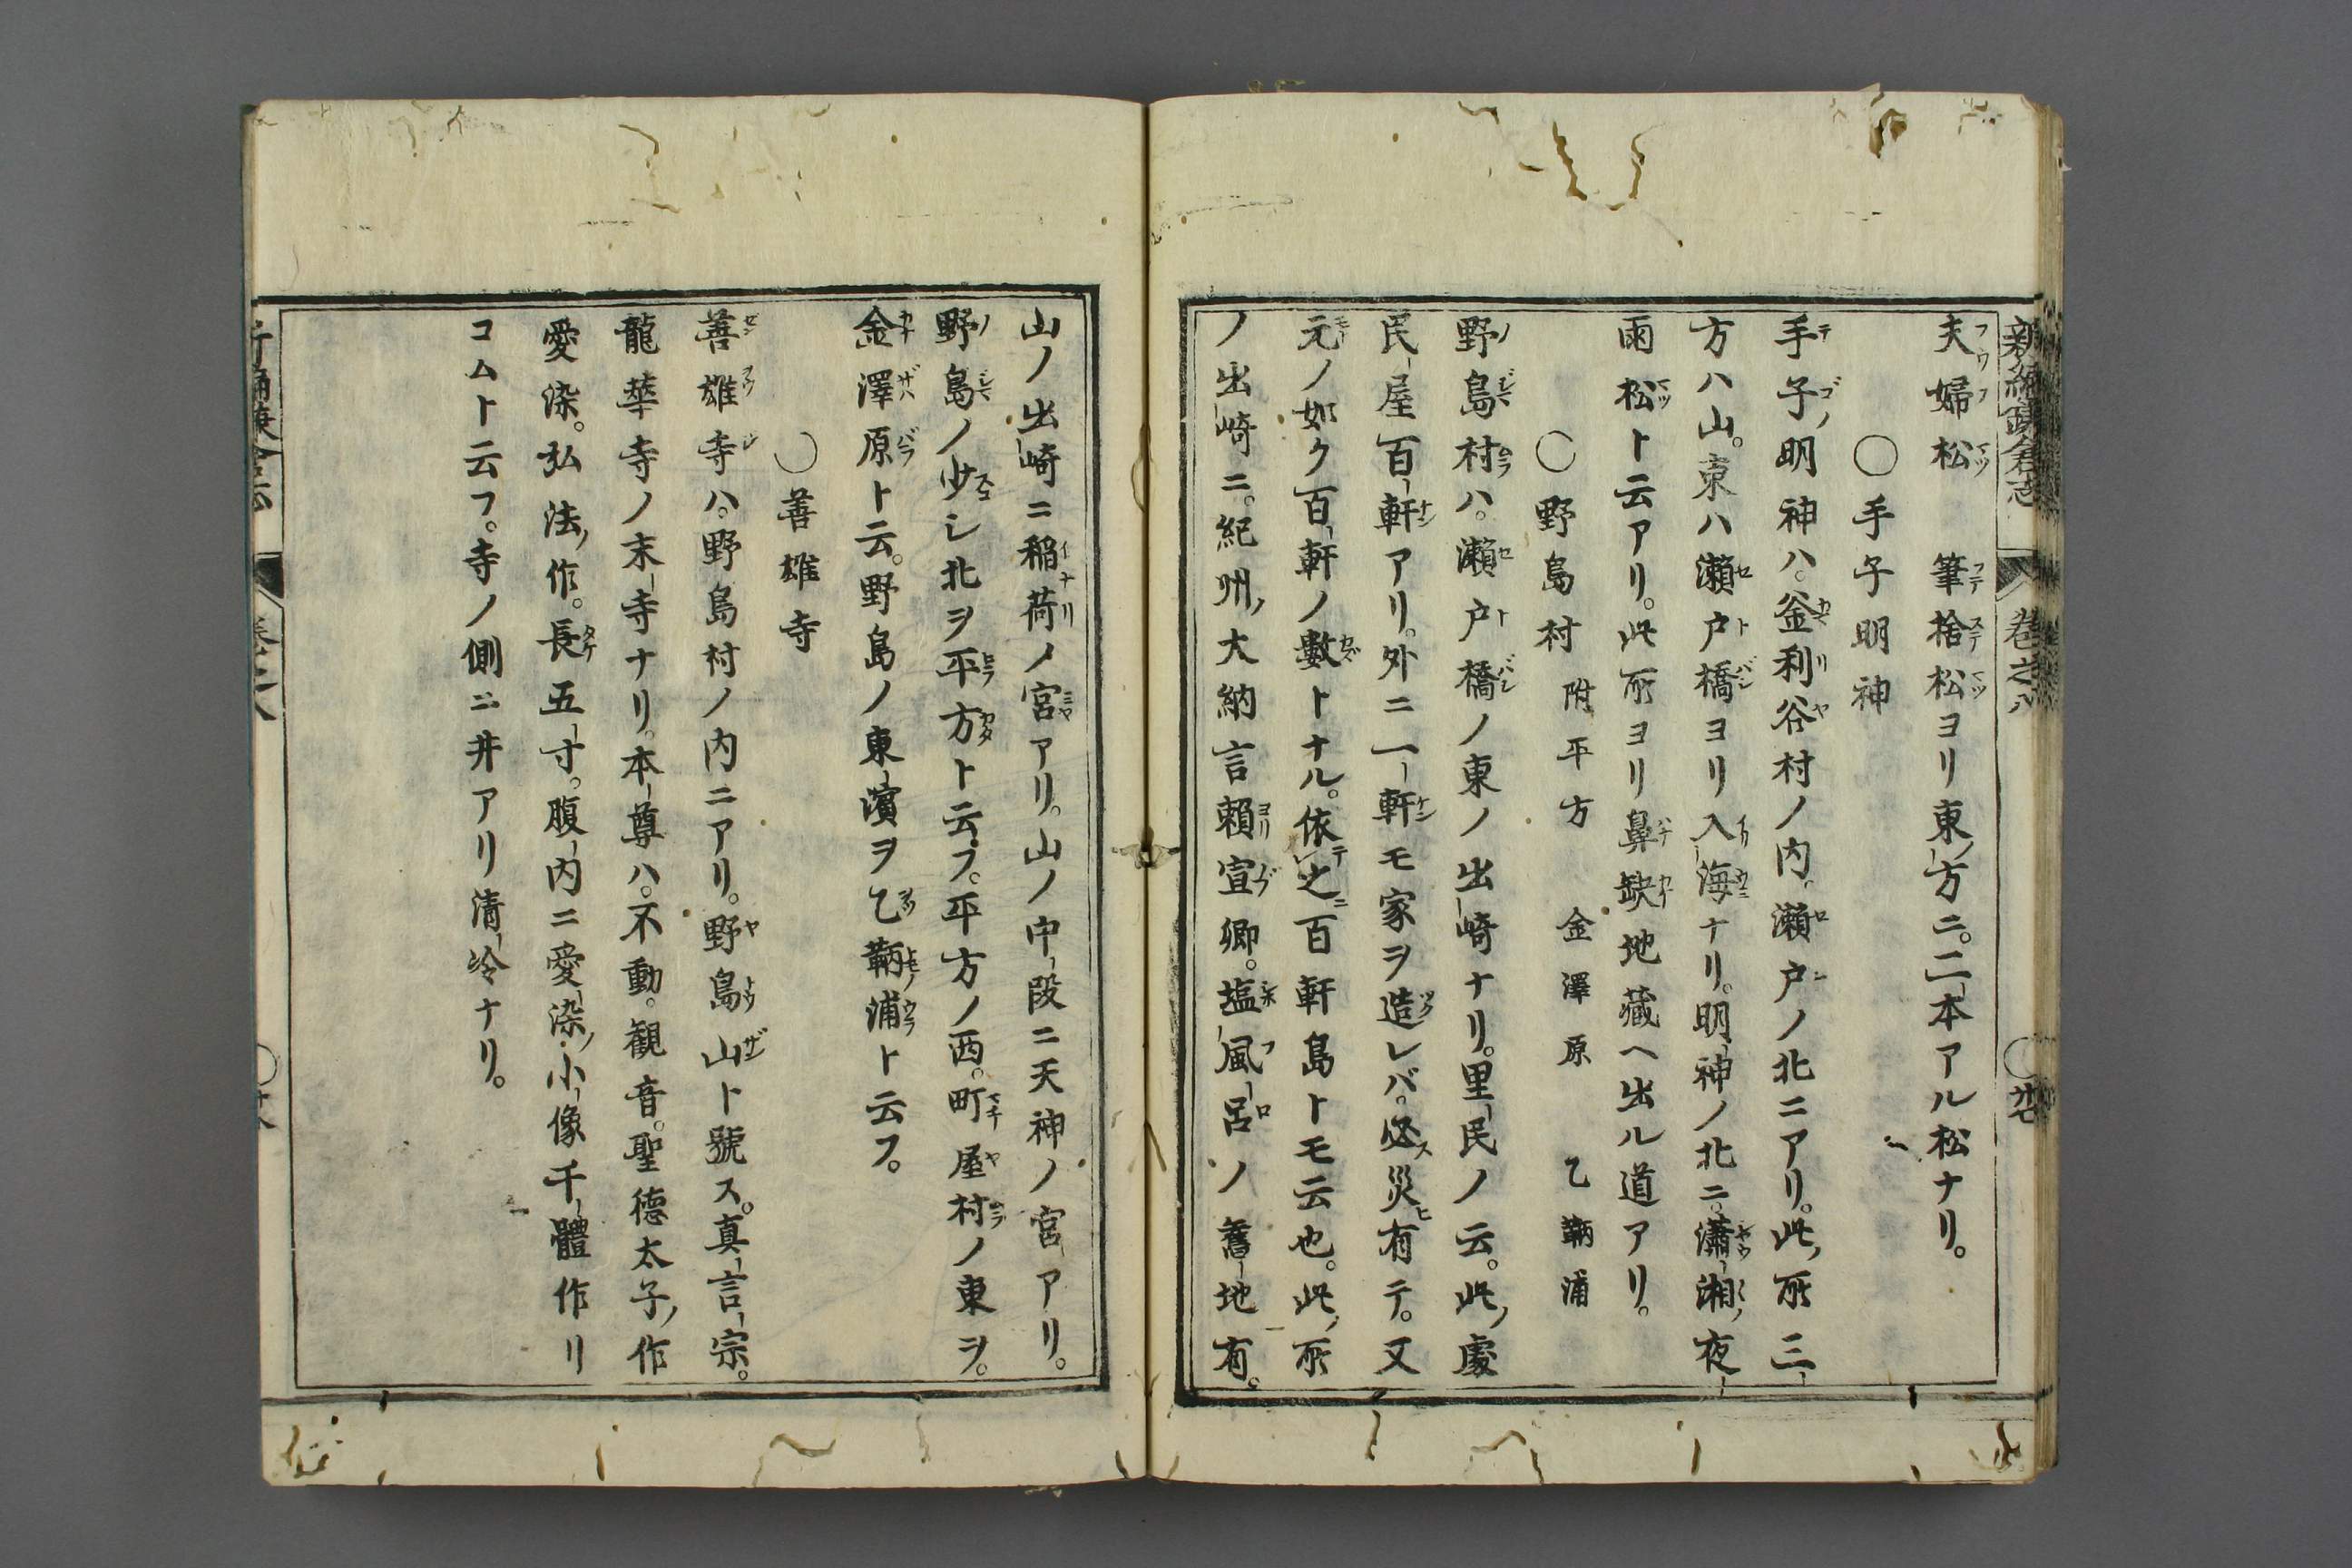 新編鎌倉志 卷之八 ○廿七
夫婦松 筆捨松ヨリ東ノ方ニ。二本アル松ナリ。
○手子明神
手子ノ明神ハ。釜利谷村ノ内。瀬戸ノ北ニアリ。此ノ所三
方ハ山。東ハ瀬戸橋ヨリ入海ナリ。明神ノ北ニ。瀟湘ノ夜
雨松ト云アリ。此所ヨリ鼻缺地藏ヘ出ル道アリ。
○野島村 附平方 金澤原 乙鞆浦
野島村ハ。瀬戸橋ノ東ノ出崎ナリ。里民ノ云。此ノ處
民屋百軒アリ。外ニ一軒モ家ヲ造レバ。必ス災有テ。又
元ノ如ク百軒ノ數トナル。依テ之ニ百軒島トモ云也。此ノ所
ノ出崎ニ。紀州ノ大納言賴宣卿。塩風呂ノ舊地有。
山ノ出崎ニ稲荷ノ宮アリ。山ノ中段ニ天神ノ宮アリ。
野島ノ少シ北ヲ平方ト云フ。平方ノ西。町屋村ノ東ヲ。
金澤原ト云。野島ノ東濱ヲ乙鞆浦ト云フ。
○善雄寺
善雄寺ハ。野島村ノ内ニアリ。野島山ト號ス。真言宗。
龍華寺ノ末寺ナリ。本尊ハ。不動。観音。聖德太子ノ作
愛染。弘法ノ作。長五寸。腹内ニ愛染ノ小像千體作リ
コムト云フ。寺ノ側ニ井アリ清冷ナリ。